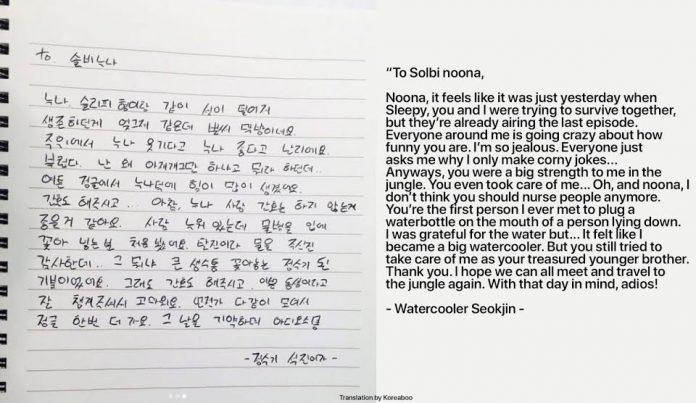 to 솔비누나
누나, 슬리피형이랑 같이 셋이 떨어져
생존하던게 엊그제 같은데 벌써 막방이네요.
주위에서 누나 웃기다고 누나 좋다고 난리에요.
부럽다. 난 왜 아재개그만 하냐고 뭐라 하던데..
여튼 정글에서 누나덕에 힘이 많이 생겼어요.
간호도 해주시고... 아참, 누나 사람 간호는 하지 않는게
좋을거 같아요. 사람 누워있는데 물병을 입에
꽂아 넣는 분 처음 봤어요. 탈진이라 물은 주신건
감사한데.. 그 뭐냐 큰 생수통 꽂아놓는 정수기 된
기분이었어요. 그래도 간호도 해주시고, 동생이라고
잘 챙겨주셔서 고마워요. 언젠가 다같이 모여서
정글 한번 더 가요. 그 날을 기약하며
-정수기 석진이가-
“To Solbi noona,
Noona, it feels like it was just yesterday when
Sleepy, you and I were trying to survive together,
but they’re already airing the last episode.
Everyone around me is going crazy about how
funny you are. I’m so jealous. Everyone just
asks me why I only make corny jokes...
Anyways, you were a big strength to me in the
jungle. You even took care of me... Oh, and noona, I
don’t think you should nurse people anymore.
You’re the first person I ever met to plug a
waterbottle on the mouth of a person lying down.
I was grateful for the water but... It felt like I
became a big watercooler. But you still tried to
take care of me as your treasured younger brother.
Thank you. I hope we can all meet and travel to
the jungle again. With that day in mind, adios!
- Watercooler Seokjin -
Translation by Koreaboo